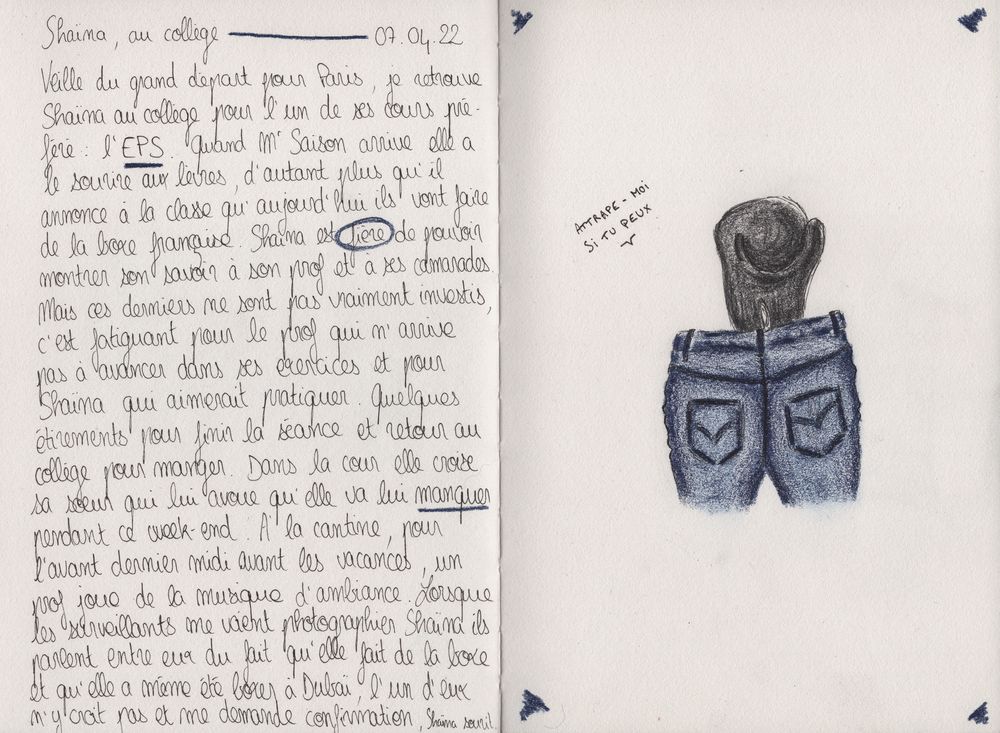 Shaïna, au collège 07.04.22
Veille du grand départ pour Paris, je retrouve
Shaïna au collège pour l'un de ses cours pré-
féré : l'EPS. Quand Mr Saison arrive elle a
le sourire aux lèvres, d'autant plus qu'il
annonce à la classe qu'aujourd'hui ils vont faire
de la boxe française. Shaïna est fière de pouvoir
montrer son savoir à son prof et a ses camarades.
Mais ces derniers ne sont pas vraiment investis,
c'est fatiguant pour le prof qui n'arrive
pas à avancer dans ses exercices et pour
Shaïna qui aimerait pratiquer. Quelques
étirements pour finir la séance et retour au
collège pour manger. Dans la cour elle croise
sa soeur qui lui avoue qu'elle va lui manquer
pendant ce week-end. À la cantine, pour
l'avant dernier midi avant les vacances, un
prof joue de la musique d'ambiance. Lorsque
les surveillants me voient photographier Shaïna ils
parlent entre eux du fait qu'elle fait de la boxe
et qu'elle a même été boxer à Dubaï, l'un d'eux
n'y croit pas et me demande confirmation, Shaïna sourit.
ATTRAPE-MOI
SI TU PEUX